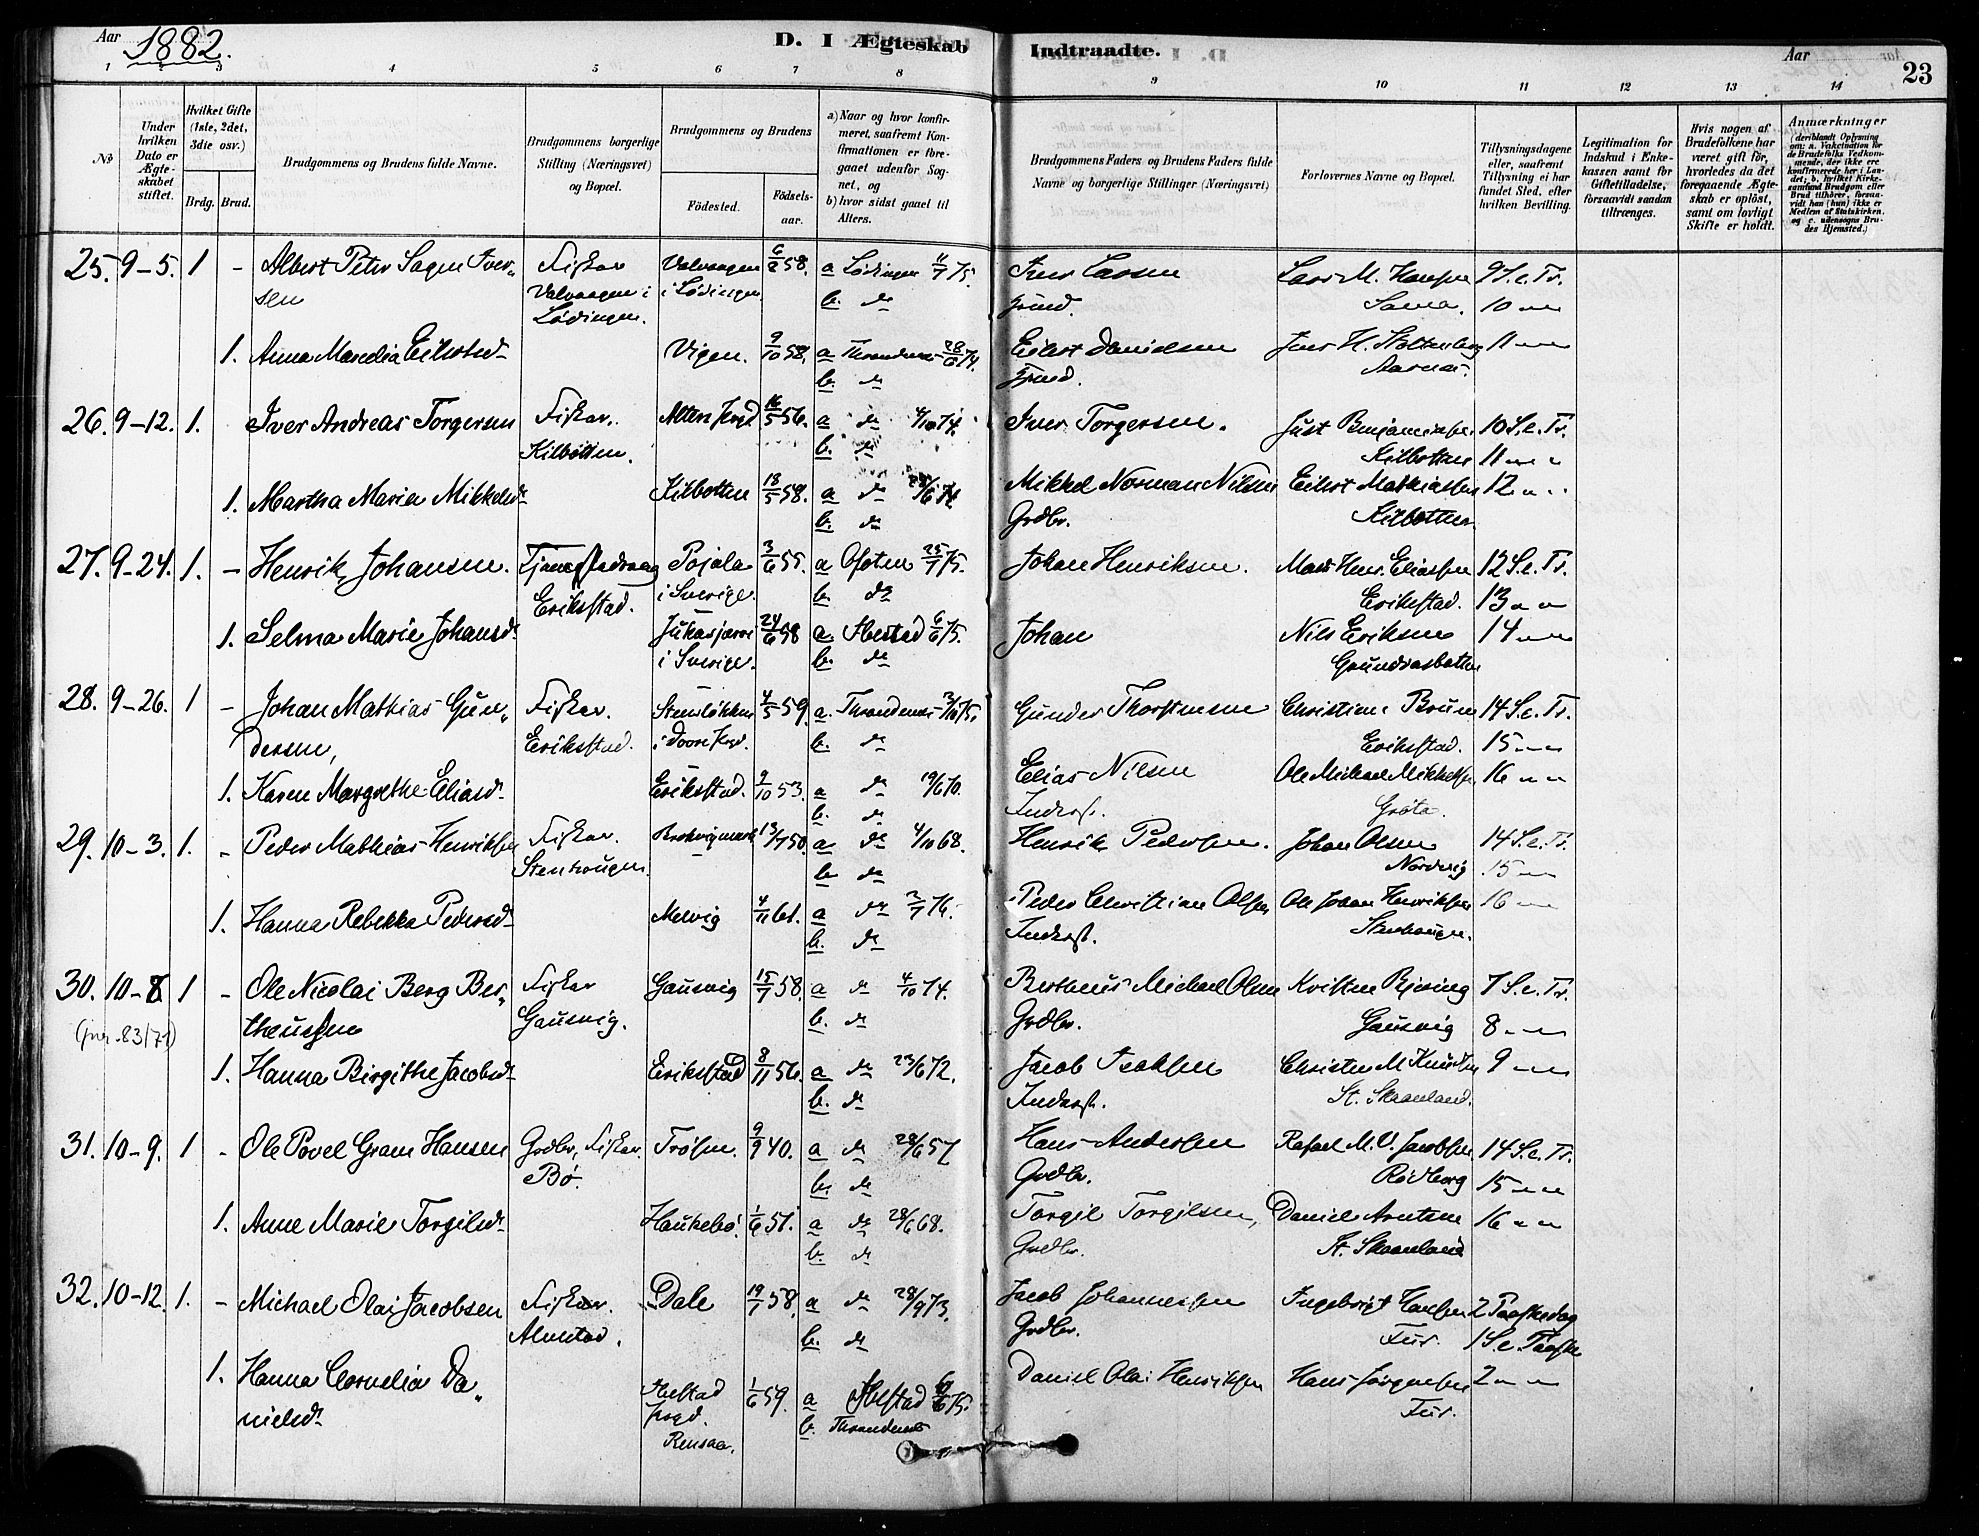 Aar 1882. D. I Ægteskab Indtraadte. Aar 23
1 2 3 4 5 6 7 8 9 10 11 12 13 14
No
Under hvilken Dato er Ægteskabet stiftet.
Hvilket Gifte (1ste, 2det, 3die osv.)
Brdg. Brud.
Brudgommens og Brudens fulde Navne.
Brudgommens borgerlige Stilling (Næringsvei) og Bopæl.
Brudgommens og Brudens
Fødested. Fødselsaar.
a) Naar og hvor konfirmeret, saafremt Konfirmationen er foregaaet udenfor Sognet, og
b) hvor sidst gaaet til Alters.
Brudgommens Faders og Brudens Faders fulde Navne og borgerlige Stillinger (Næringsvei)
Forlovernes Navne og Bopæl.
Tillysningsdagene eller, saafremt Tillysning ei har fundet Sted, efter hvilken Bevilling.
Legitimation for Indskud i Enkekassen samt for Giftetilladelse, forsaavidt saadan tiltrænges.
Hvis nogen af Brudefolkene har været gift før, hvorledes da det foregaaende Ægteskab er opløst, samt om lovligt Skifte er holdt.
Anmærkninger (deriblandt Oplysning om: a. Vakcination for de Brudefolks Vedkommende, der ikke ere konfirmerede her i Landet; b. hvilket Kirkesamfund Brudgom eller Brud tilhører, forsaavidt han (hun) ikke er Medlem af Statskirken, og c. udensogns Brudes Hjemsted.)
25. 9-5. 1 - Albert Peter Sagen Iver- Fisker Valvaagen 6/2 58. a Lødingen 11/7 75. Iver Larsen Lars M. Hansen 9 S. e. Tr.
sen Valvaagen i Lødingen. i Lødingen b. do 10 " "
1. Anna Mardia Eilertsd. Vigen. 9/10 58. a Throndenes 28/6 74. Eilert Danielsen Jens H. Stoltenberg 11 " "
b. do Aarnæs.
26. 9-12. 1. Iver Andreas Torgersen Fisker. Alten Prgd 16/5 56. a do 4/10 74. Iver Torgersen. Just Benjaminsen 10 S. e. Tr.
Kilbotten. b. do Kilbotten 11 " "
1. Martha Maria Mikkelsd. Kilbotten 18/5 58. a do Mikkel Norman Nilsen Eilert Mathiassen 12 " "
b. do Grdbr. Kilbotten.
27. 9-24. 1. - Henrik Johansen. Eriksstad. Pajala i Sverige. 3/6 55. a Ofoten 25/7 75. Johan Henriksen. Mads Henr. Eliassen 12 S. e. Tr.
b. do Eriksstad. 13 " "
1. Selma Marie Johansd. Jukasjærvi i Sverige. 24/6 58 a. Ibestad 6/6 75. Johan Nils Eriksen 14 " "
b. do
28. 9-26. 1 - Johan Mathias Gun- Fisker. 4/5 59. a. Throndenes Gunder Thorstensen Christian Bruun 14 S. e. Tr.
dersen, Eriksstad. b. do Eriksstad. 15 " "
1. Karen Margrethe Eliasd. Eriksstad. 9/10 53. a do 19/6 70. Elias Nilsen Ole Michael Mikkelsen 16 " "
b. do Inderst. Grøta.
29. 10-3. 1. - Peder Mathias Henriksen Fisker. 13/7 50. a do 4/10 68. Henrik Pedersen. Johan Olsen 14 S. e. Tr.
Stenhougen. b. do Nordvig 15 " "
1. Hanna Rebekka Pedersd. Melvig 4/11 61. a do 2/7 76. Peder Christian Olsen Ole Johan Henriksen 16 " "
b. do Inderst. Stenhougen.
30. 10-8. 1 - Ole Nicolai Berg Ber- Fisker Gausvig 15/7 58. a do 4/10 74. Bertheus Michael Olsen Kristen Bjering 7 S. e. Tr.
theussen Gausvig. b. do Grdbr. Gausvig 8 " "
1. Hanna Birgithe Jacobsd. Eriksstad 8/11 56. a do 23/6 72. Jacob Isaksen Christen M Knudsen 9 " "
b. do Inderst. St. Skaanland.
31. 10-9. 1 - Ole Povel Gram Hansen Grdbr. Fisker. Trøsen. 9/9 40. a do 28/6 57 Hans Andersen Rafael M. U. Jacobsen 14 S. e. Tr.
Bø. b. do Grdbr. Rødberg 15 " "
1. Anne Marie Torgilsd. Haukebø. 1/6 51. a do 28/6 68. Torgil Torgilsen, Daniel Arntsen 16 " "
b. do Grdbr. St. Skaanland
32. 10-12. 1. - Michael Olai Jacobsen Fisker. Dale 19/7 58. a do 28/9 73. Jacob Johannessen Ingebrigt Hansen 2 Paaskedag
Alvestad. b. do Grdbr. Fur. 1 S. e. Paaske
1. Hanna Cornelia Da- Ibestad 1/6 59. a Ibestad 6/6 75. Daniel Olai Henriksen Hans Jørgensen 2 " "
nielsd. prgd. Rensaa. b. Throndenes Fur.